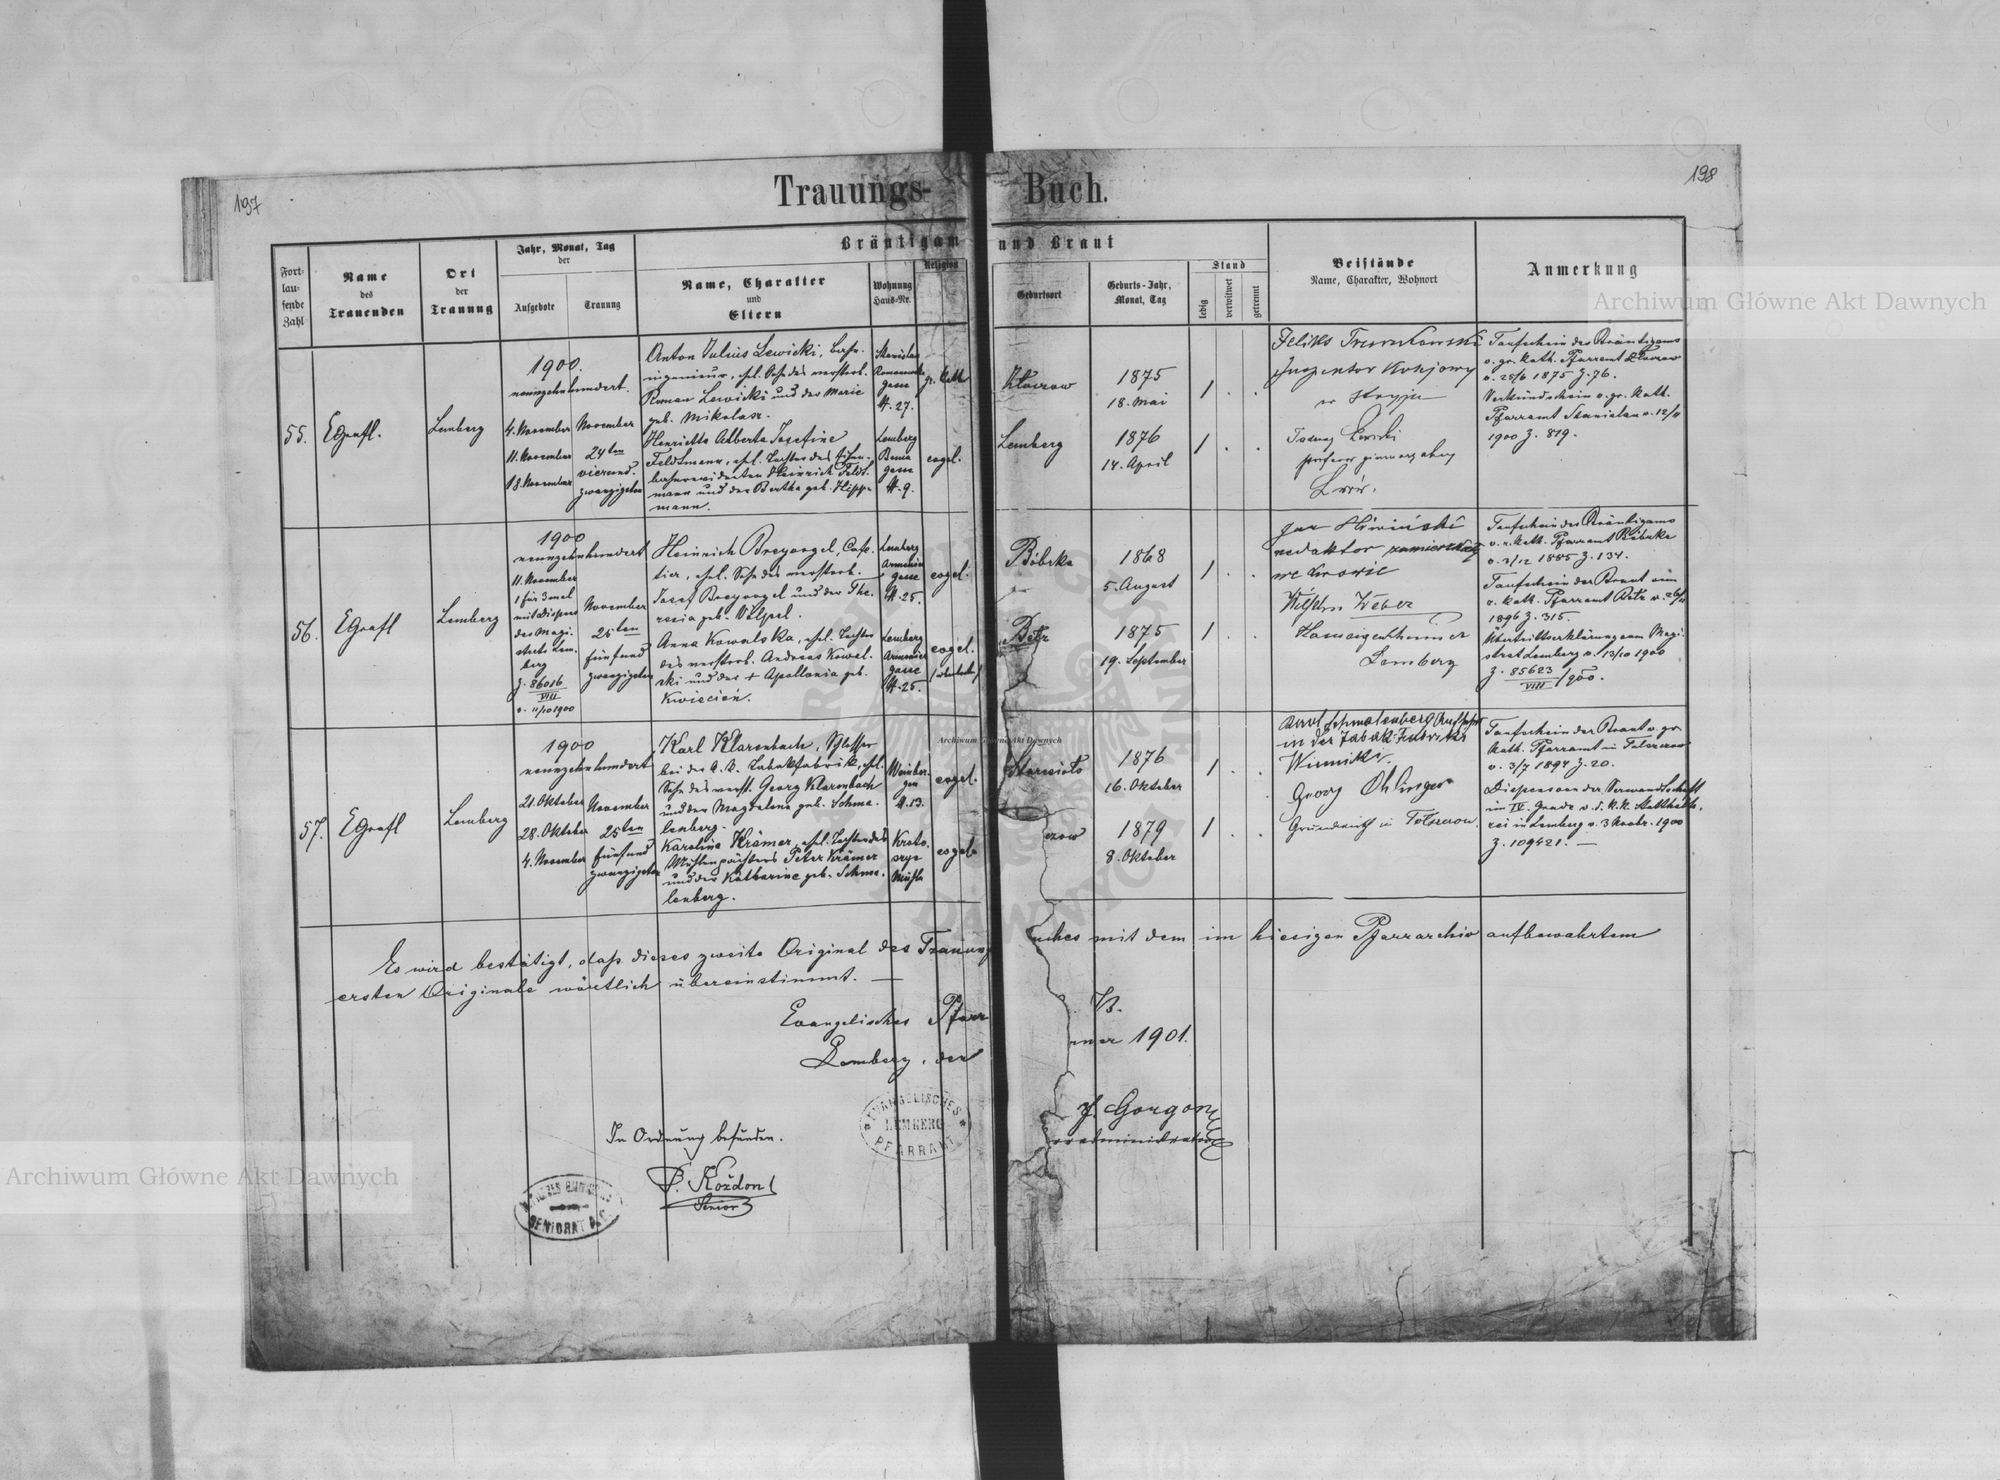 197
198
Trauungs-
Buch.
Fort-
lau-
fende
Zahl
Name
des
Trauenden
Ort
der
Trauung
Jahr, Monat, Tag
der
Aufgebote
Trauung
Bräutigam
und Braut
Name, Charakter
und
Eltern
Wohnung
Haus-Nr.
Religion
Geburtsort
Geburts-Jahr,
Monat, Tag
Stand
ledig
verwitwet
getrennt
Beistände
Name, Charakter, Wohnort
Anmerkung
55.
Lemberg
1900.
neunzehnhundert
4. November
11. November
18. November
November
24ten
vierund-
zwanzigsten
Anton Julius Lewicki, Bahn-
ingenieur, ehel. Sohn des verstorb.
Roman Lewicki und der Marie
geb. Mikolasz.
Henriette Alberta Josefine
Feldtmann, ehel. Tochter des Eisen-
bahnrevidenten Heinrich Feldt-
mann und der Bertha geb. Hipp-
mann.
gasse
N. 27.
Lemberg
gasse
N. 9.
gr. kath
evgel.
1875
18. Mai
1
Lemberg
1876
14. April
1
w Stryju
Lwów.
Taufschein des Bräutigams
v. gr. kath. Pfarramt
v. 28/6 1875 Z. 76.
Verkündschein v. gr. kath.
Pfarramt Stanislau v. 12/11
1900 Z. 819.
56.
Lemberg
1900
neunzehnhundert
11. November
1 für 3 mal
mit Dispens
des Magi-
strats Lem-
berg
Z. 86016
VIII
v. 11/10 1900
November
25ten
fünfund
zwanzigsten
Heinrich Breyvogel, Cafe-
tier, ehel. Sohn des verstorb.
Josef Breyvogel und der The-
resia geb. Völpel.
Anna Kowalska, ehel. Tochter
des verstorb. Andreas Kowal-
ski und der + Apollonia geb.
Kwiecień.
Lemberg
Armenier
gasse
N. 25.
Lemberg
Armenier
gasse
N. 25.
evgel.
evgel.
Bóbrka
1868
5. August
1
Bełz
1875
19. September
1
redaktor zamieszkały
we Lwowie
Wilhelm Weber
Hauseigenthümer
Lemberg
Taufschein des Bräutigams
v. r. kath. Pfarramt Bóbrka
v. 3/12 1885 Z. 134.
Taufschein der Braut vom
r. kath. Pfarramt Bełz
1896 Z. 315.
Übertrittserklärung vom Magi-
strat Lemberg v. 13/10 1900
Z. 85623/1900.
VIII
57.
Lemberg
1900
neunzehnhundert
21. Oktober
28. Oktober
4. November
November
25ten
fünfund
zwanzigsten
Karl Klarenbach, Schlosser
bei der k. k. Tabakfabrik, ehel.
Sohn des verst. Georg Klarenbach
und der Magdalena geb. Schma-
lenberg.
Karolina Krämer, ehel. Tochter des
Mühlenpächters Peter Krämer
und der Katharine geb. Schma-
lenberg.
Weinber-
gen
N. 13.
Mühle
evgel.
evgel.
1876
16. Oktober
1
1879
8. Oktober
1
Karl Schmalenberg Aufseher
in der Tabak-Fabrik
Winniki.
Georg Ohlinger
Taufschein der Braut v. gr.
kath. Pfarramt in
v. 3/7 1894 Z. 20.
Dispens von der Verwandtschaft
im IV. Grade v. d. k. k. Statthalte-
rei in Lemberg v. 3 Novbr. 1900
Z. 109421. —
Es wird bestätigt, daß dieses zweite Original des Trauung
uches mit dem im hiesigen Pfarrarchiv aufbewahrtem
ersten Originale wörtlich übereinstimmt. —
Evangelisches Pfarr
Lemberg, den
ner 1901.
EVANGELISCHES
LEMBERG
PFARRAMT
In Ordnung befunden.
P. Kożdon
Senior
SENIORAT A.C.
Archiwum Główne Akt Dawnych
Archiwum Główne Akt Dawnych
Archiwum Główne Akt Dawnych